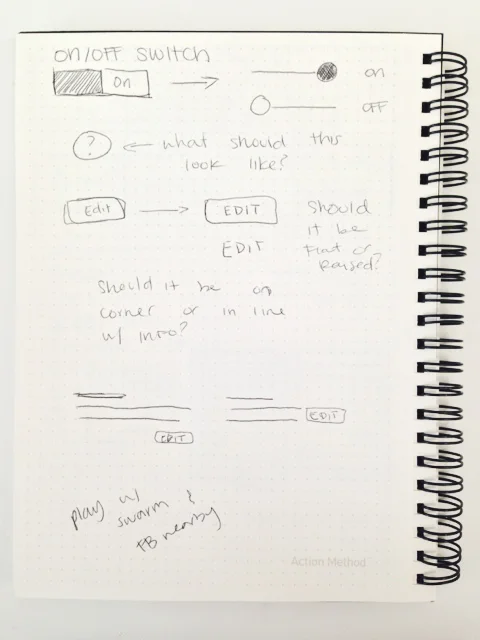 on/off switch
On
on
OFF
? ← what should this
look like?
Edit → EDIT
EDIT
Should
it be
Flat or
Raised?
Should it be on
corner or in line
w/ info?
EDIT
EDIT
play w/
swarm &
FB nearby
Action Method